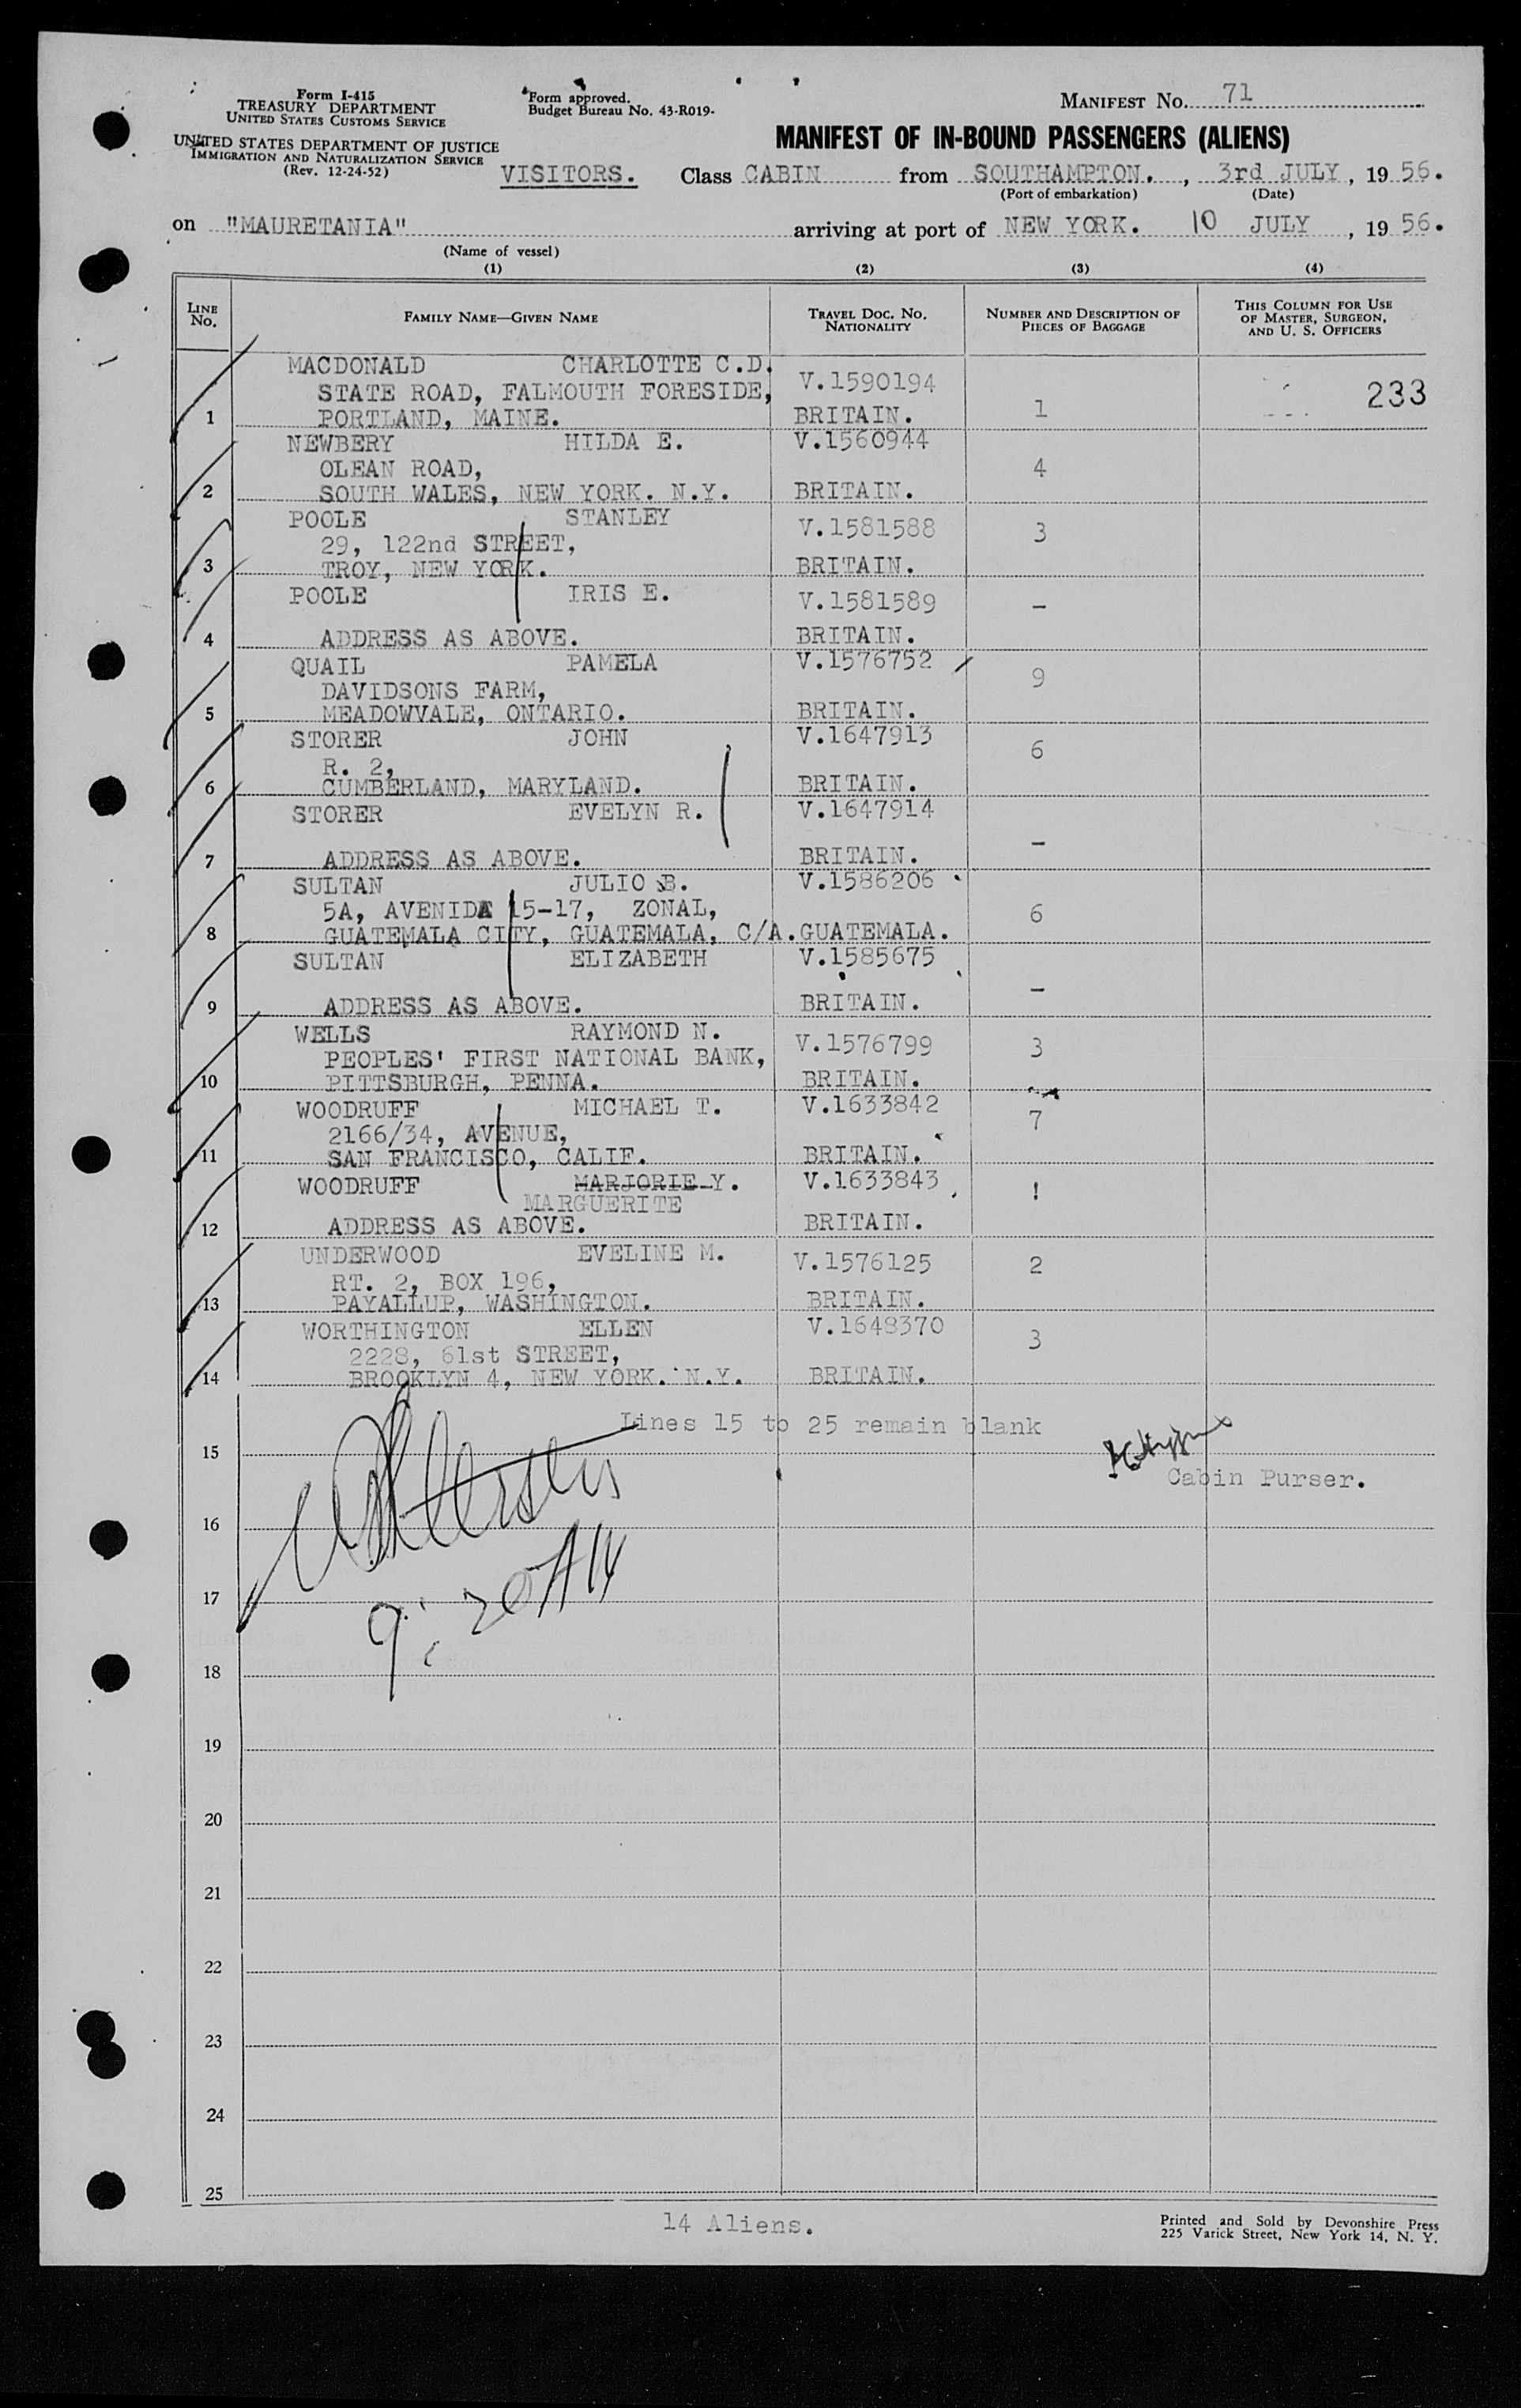 Form I-415
TREASURY DEPARTMENT
UNITED STATES CUSTOMS SERVICE
UNITED STATES DEPARTMENT OF JUSTICE
IMMIGRATION AND NATURALIZATION SERVICE
(Rev. 12-24-52)
Form approved.
Budget Bureau No. 43-R019-
MANIFEST NO. 71
MANIFEST OF IN-BOUND PASSENGERS (ALIENS)
VISITORS. Class CABIN from SOUTHAMPTON. , 3rd JULY , 19 56.
(Port of embarkation) (Date)
on "MAURETANIA" arriving at port of NEW YORK. 10 JULY , 19 56.
(Name of vessel)
(1) (2) (3) (4)
LINE NO. FAMILY NAME—GIVEN NAME TRAVEL DOC. NO. NATIONALITY NUMBER AND DESCRIPTION OF PIECES OF BAGGAGE THIS COLUMN FOR USE OF MASTER, SURGEON, AND U. S. OFFICERS
MACDONALD CHARLOTTE C.D.
STATE ROAD, FALMOUTH FORESIDE, V.1590194 233
1 PORTLAND, MAINE. BRITAIN. 1
NEWBERY HILDA E. V.1560944
OLEAN ROAD, 4
2 SOUTH WALES, NEW YORK. N.Y. BRITAIN.
POOLE STANLEY V.1581588 3
29, 122nd STREET,
3 TROY, NEW YORK. BRITAIN.
POOLE IRIS E. V.1581589 -
4 ADDRESS AS ABOVE. BRITAIN.
QUAIL PAMELA V.1576752 9
DAVIDSONS FARM,
5 MEADOWVALE, ONTARIO. BRITAIN.
STORER JOHN V.1647913 6
R. 2,
6 CUMBERLAND, MARYLAND. BRITAIN.
STORER EVELYN R. V.1647914 -
7 ADDRESS AS ABOVE. BRITAIN.
SULTAN JULIO B. V.1586206
5A, AVENIDA 15-17, ZONAL, 6
8 GUATEMALA CITY, GUATEMALA, C/A. GUATEMALA.
SULTAN ELIZABETH V.1585675 -
9 ADDRESS AS ABOVE. BRITAIN.
WELLS RAYMOND N. V.1576799 3
PEOPLES' FIRST NATIONAL BANK,
10 PITTSBURGH, PENNA. BRITAIN.
WOODRUFF MICHAEL T. V.1633842 7
2166/34, AVENUE,
11 SAN FRANCISCO, CALIF. BRITAIN.
WOODRUFF MARJORIE Y. V.1633843 !
MARGUERITE
12 ADDRESS AS ABOVE. BRITAIN.
UNDERWOOD EVELINE M. V.1576125 2
RT. 2, BOX 196,
13 PAYALLUP, WASHINGTON. BRITAIN.
WORTHINGTON ELLEN V.1648370 3
2228, 61st STREET,
14 BROOKLYN 4, NEW YORK. N.Y. BRITAIN.
Lines 15 to 25 remain blank
15
Cabin Purser.
16
17
9:20 AM
18
19
20
21
22
23
24
25
14 Aliens.
Printed and Sold by Devonshire Press
225 Varick Street, New York 14, N. Y.